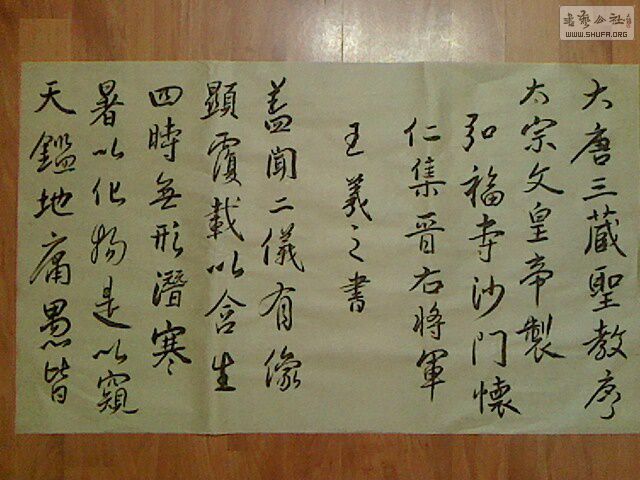 大唐三藏聖教序
太宗文皇帝製
弘福寺沙門懷
仁集晉右將軍
王羲之書
蓋聞二儀有像
顯覆載以含生
四時無形潛寒
暑以化物是以窺
天鑑地庸愚皆
書藝公社
WWW.SHUFA.ORG